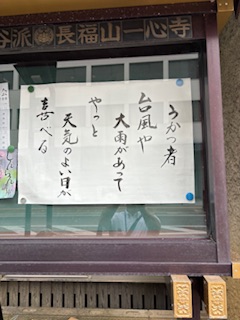 谷派 長福山一心寺
うかつ者
台風や
大雨があって
やっと
天気のよい日が
喜べる